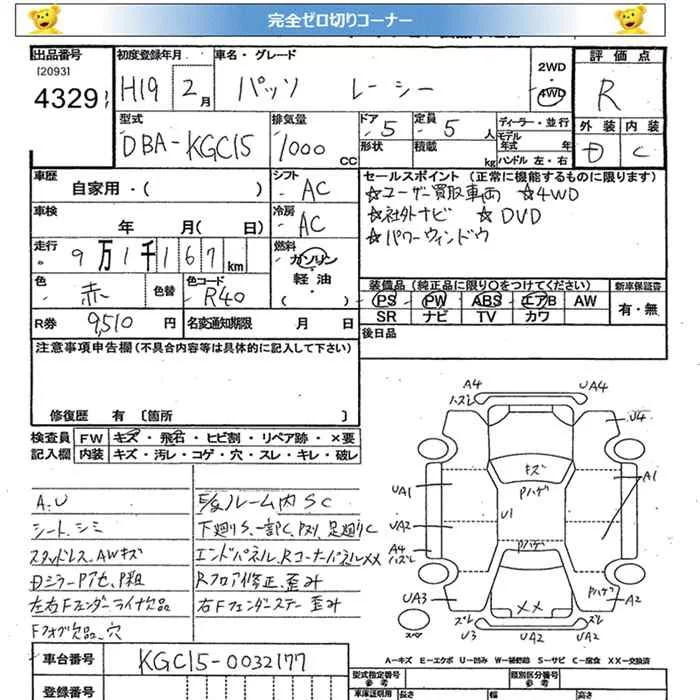 完全ゼロ切りコーナー
出品番号 初度登録年月 車名・グレード 2WD 4WD 評価点
[2093]
4329 H19 2月 パッソ レーシー R
型式 排気量 ドア 定員 ディーラー・並行 外装 内装
DBA-KGC15 1000 CC 5 5 人 モデル年式 年 D C
形状 積載 kg ハンドル 左・右
車歴 シフト セールスポイント (正常に機能するものに限ります)
自家用・( ) AC ☆ユーザー買取車両 ☆4WD
車検 冷房 ☆社外ナビ ☆DVD
年 月( 日) AC ☆パワーウィンドウ
走行 9万1千167 km 燃料 ガソリン 軽油 ( )
色 赤 色替 色コード R40 装備品 (純正品に限り○をつけてください) 新車保証書
PS PW ABS エアB AW 有・無
SR ナビ TV カワ
R券 9,510 円 名変通知期限 月 日
後日品
注意事項申告欄(不具合内容等は具体的に記入して下さい)
修復歴 有 [箇所 ]
検査員 FW キズ・飛石・ヒビ割・リペア跡・×要
記入欄 内装 キズ・汚レ・コゲ・穴・スレ・キレ・破レ
A.U
シート.シミ 下廻りS、一部C、Pスリ、足廻りC
スタッドレス.AWキズ エンドパネル、RコーナーパネルXX
Rフロア修正、歪み
左右Fフェンダーライナ欠品 右Fフェンダーステー歪み
Fフォグ欠品、穴
A4 UA4
ハズレ U4
キズ
Pハゲ A1
UA1 U1
UA2 Pハゲ
A4
ハズレ
UA3 XX Pハゲ A2
スペア ズレ ズレ
U3 UA2 UA2
車台番号 KGC15-0032177
A-キズ E-エクボ U-凹み W-補修跡 S-サビ C-腐食 XX-交換済
登録番号 型式指定番号 参考 類別区分番号 参考
車庫証明用 長さ 幅 高さ